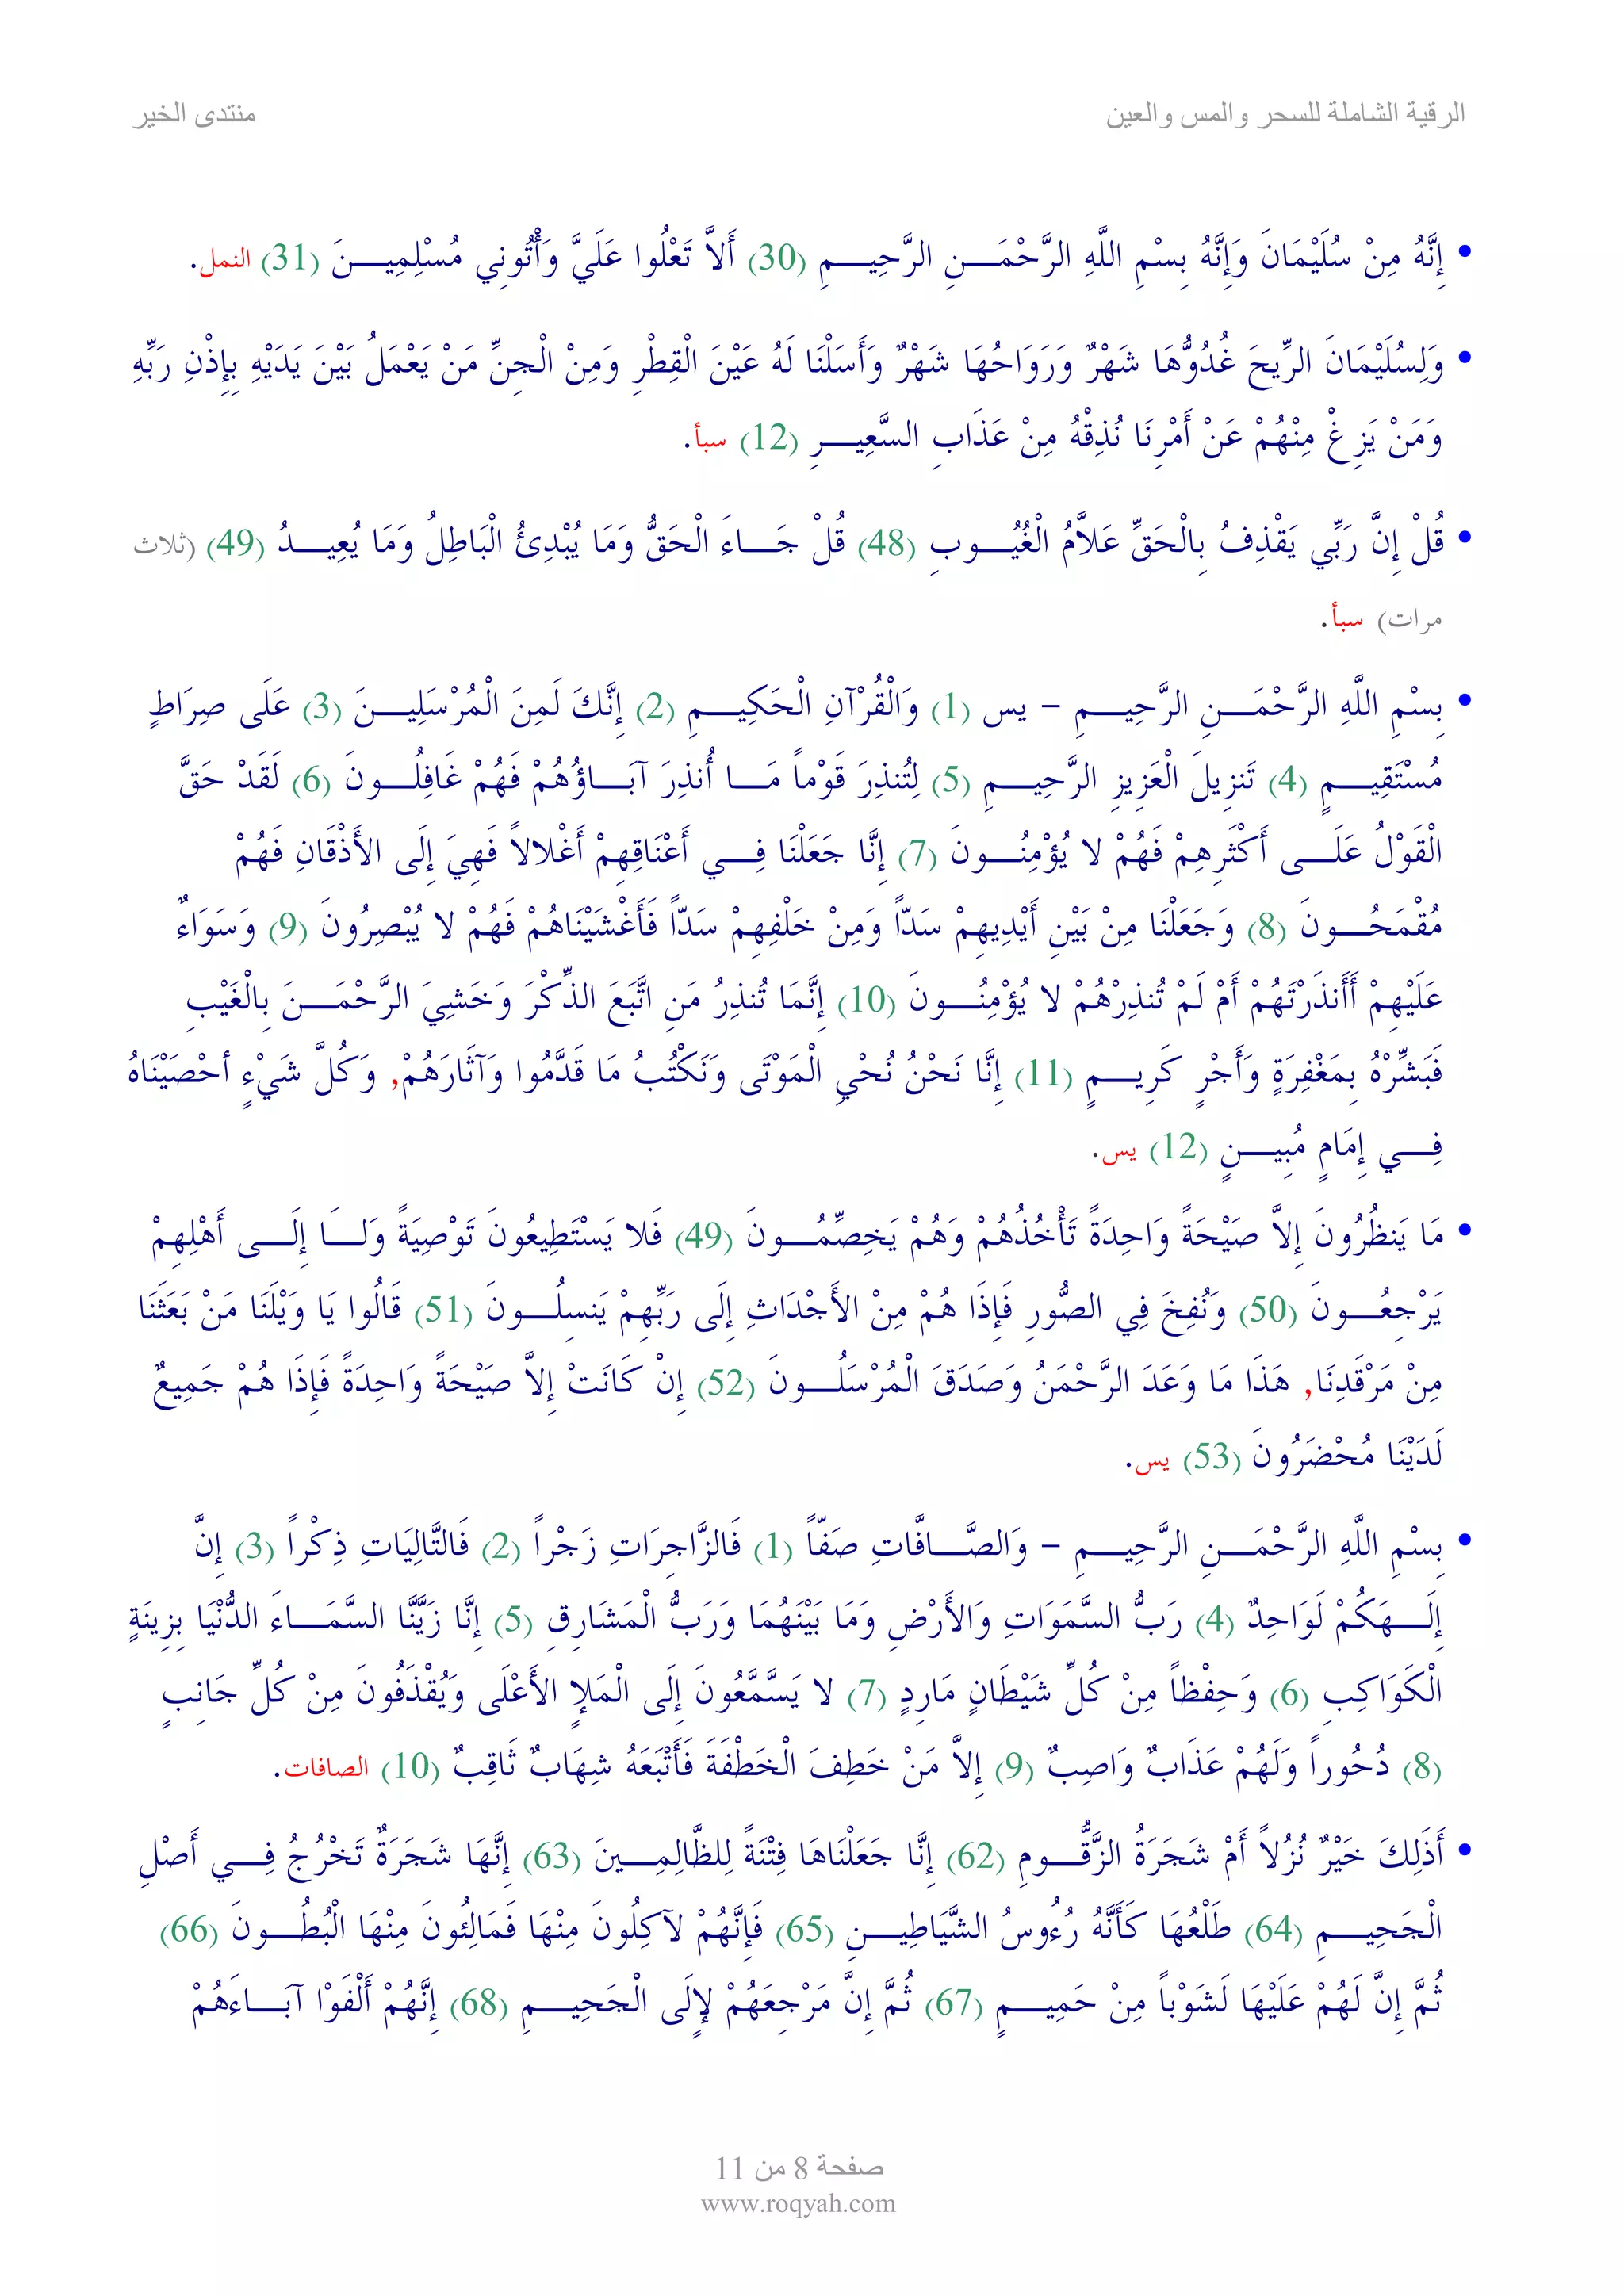 الرقية الشاملة للسحر والمس والعين منتدى الخير
• إِنَّهُ مِنْ سُلَيْمَانَ وَإِنَّهُ بِسْمِ اللَّهِ الرَّحْمَـــنِ الرَّحِيـــمِ (30) أَلاَّ تَعْلُوا عَلَيَّ وَأْتُونِي مُسْلِمِيـــنَ (31) النمل.
• وَلِسُلَيْمَانَ الرِّيحَ غُدُوُّهَا شَهْرٌ وَرَوَاحُهَا شَهْرٌ وَأَسَلْنَا لَهُ عَيْنَ الْقِطْرِ وَمِنْ الْجِنِّ مَنْ يَعْمَلُ بَيْنَ يَدَيْهِ بِإِذْنِ رَبِّهِ
وَمَنْ يَزِغْ مِنْهُمْ عَنْ أَمْرِنَا نُذِقْهُ مِنْ عَذَابِ السَّعِيـــرِ (12) سبأ.
• قُلْ إِنَّ رَبِّي يَقْذِفُ بِالْحَقِّ عَلاَّمُ الْغُيُـــوبِ (48) قُلْ جَـــاءَ الْحَقُّ وَمَا يُبْدِئُ الْبَاطِلُ وَمَا يُعِيـــدُ (49) (ثلاث
مرات) سبأ.
• بِسْمِ اللَّهِ الرَّحْمَـــنِ الرَّحِيـــمِ – يس (1) وَالْقُرْآنِ الْحَكِيـــمِ (2) إِنَّكَ لَمِنَ الْمُرْسَلِيـــنَ (3) عَلَى صِرَاطٍ
مُسْتَقِيـــمٍ (4) تَنزِيلَ الْعَزِيزِ الرَّحِيـــمِ (5) لِتُنذِرَ قَوْماً مَـــا أُنذِرَ آبَـــاؤُهُمْ فَهُمْ غَافِلُـــونَ (6) لَقَدْ حَقَّ
الْقَوْلُ عَلَـــى أَكْثَرِهِمْ فَهُمْ لا يُؤْمِنُـــونَ (7) إِنَّا جَعَلْنَا فِـــي أَعْنَاقِهِمْ أَغْلالاً فَهِيَ إِلَى الأَذْقَانِ فَهُمْ
مُقْمَحُـــونَ (8) وَجَعَلْنَا مِنْ بَيْنِ أَيْدِيهِمْ سَدّاً وَمِنْ خَلْفِهِمْ سَدّاً فَأَغْشَيْنَاهُمْ فَهُمْ لا يُبْصِرُونَ (9) وَسَوَاءٌ
عَلَيْهِمْ أَأَنذَرْتَهُمْ أَمْ لَمْ تُنذِرْهُمْ لا يُؤْمِنُـــونَ (10) إِنَّمَا تُنذِرُ مَنِ اتَّبَعَ الذِّكْرَ وَخَشِيَ الرَّحْمَـــنَ بِالْغَيْبِ
فَبَشِّرْهُ بِمَغْفِرَةٍ وَأَجْرٍ كَرِيـــمٍ (11) إِنَّا نَحْنُ نُحْيِ الْمَوْتَى وَنَكْتُبُ مَا قَدَّمُوا وَآثَارَهُمْ, وَكُلَّ شَيْءٍ أحْصَيْنَاهُ
فِـــي إِمَامٍ مُبِيـــنٍ (12) يس.
• مَا يَنظُرُونَ إِلاَّ صَيْحَةً وَاحِدَةً تَأْخُذُهُمْ وَهُمْ يَخِصِّمُـــونَ (49) فَلا يَسْتَطِيعُونَ تَوْصِيَةً وَلـــَا إِلَـــى أَهْلِهِمْ
يَرْجِعُـــونَ (50) وَنُفِخَ فِي الصُّورِ فَإِذَا هُمْ مِنْ الأَجْدَاثِ إِلَى رَبِّهِمْ يَنسِلُـــونَ (51) قَالُوا يَا وَيْلَنَا مَنْ بَعَثَنَا
مِنْ مَرْقَدِنَا, هَذَا مَا وَعَدَ الرَّحْمَنُ وَصَدَقَ الْمُرْسَلُـــونَ (52) إِنْ كَانَتْ إِلاَّ صَيْحَةً وَاحِدَةً فَإِذَا هُمْ جَمِيعٌ
لَدَيْنَا مُحْضَرُونَ (53) يس.
• بِسْمِ اللَّهِ الرَّحْمَـــنِ الرَّحِيـــمِ – وَالصَّـــافَّاتِ صَفّاً (1) فَالزَّاجِرَاتِ زَجْراً (2) فَالتَّالِيَاتِ ذِكْراً (3) إِنَّ
إِلَـــهَكُمْ لَوَاحِدٌ (4) رَبُّ السَّمَوَاتِ وَالأَرْضِ وَمَا بَيْنَهُمَا وَرَبُّ الْمَشَارِقِ (5) إِنَّا زَيَّنَّا السَّمَـــاءَ الدُّنْيَا بِزِينَةٍ
الْكَوَاكِبِ (6) وَحِفْظاً مِنْ كُلِّ شَيْطَانٍ مَارِدٍ (7) لا يَسَّمَّعُونَ إِلَى الْمَلإٍ الأَعْلَى وَيُقْذَفُونَ مِنْ كُلِّ جَانِبٍ
(8) دُحُوراً وَلَهُمْ عَذَابٌ وَاصِبٌ (9) إِلاَّ مَنْ خَطِفَ الْخَطْفَةَ فَأَتْبَعَهُ شِهَابٌ ثَاقِبٌ (10) الصافات.
• أَذَلِكَ خَيْرٌ نُزُلاً أَمْ شَجَرَةُ الزَّقُّـــومِ (62) إِنَّا جَعَلْنَاهَا فِتْنَةً لِلظَّالِمِـــينَ (63) إِنَّهَا شَجَرَةٌ تَخْرُجُ فِـــي أَصْلِ
الْجَحِيـــمِ (64) طَلْعُهَا كَأَنَّهُ رُءُوسُ الشَّيَاطِيـــنِ (65) فَإِنَّهُمْ لآكِلُونَ مِنْهَا فَمَالِئُونَ مِنْهَا الْبُطُـــونَ (66)
ثُمَّ إِنَّ لَهُمْ عَلَيْهَا لَشَوْباً مِنْ حَمِيـــمٍ (67) ثُمَّ إِنَّ مَرْجِعَهُمْ لإٍلَى الْجَحِيـــمِ (68) إِنَّهُمْ أَلْفَوْا آبَـــاءَهُمْ
صفحة 8 من 11
www.roqyah.com